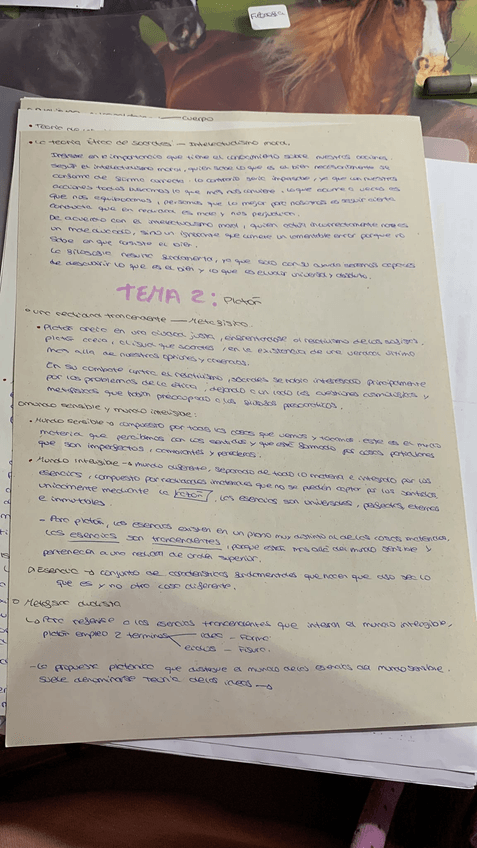 Febrero
Cuerpo
• Teoría
• La teoría ética de Sócrates — Intelectualismo moral.
Insiste en la importancia que tiene el conocimiento sobre nuestras acciones.
Según el intelectualismo moral, quien sabe lo que es el bien necesariamente se
comporta de forma correcta. Lo contrario sería imposible, ya que en nuestras
acciones todos buscamos lo que más nos conviene, lo que ocurre a veces es
que nos equivocamos, y pensamos que lo mejor para nosotros es seguir cierta
conducta que en realidad es mala y nos perjudica.
De acuerdo con el intelectualismo moral, quien actúa incorrectamente no es
un malvado, sino un ignorante que comete un lamentable error porque no
sabe en que consiste el bien.
La filosofía resulta fundamental, ya que solo con su ayuda seremos capaces
de descubrir lo que es el bien y lo que es el valor universal y absoluto.
TEMA 2: Platón
• Una realidad trancendente — Metafísica.
• Platón creció en una ciudad justa, enfrentándose al relativismo de los sofistas.
Platón creía, al igual que Sócrates, en la existencia de una verdad última
más allá de nuestras opiniones y creencias.
En su combate contra el relativismo, Sócrates se había interesado principalmente
por los problemas de la ética, dejando a un lado las cuestiones cosmológicas y
metafísicas que tanto preocuparon a los filósofos presocráticos.
Mundo sensible y mundo inteligible:
• Mundo sensible → compuesto por todas las cosas que vemos y tocamos. Este es el mundo
material que percibimos con los sentidos y que está formado por cosas particulares
que son imperfectas, cambiantes y perecederas.
• Mundo Inteligible → mundo diferente, separado de todo lo material e integrado por las
esencias, compuesto por realidades inmateriales que no se pueden captar por los sentidos,
únicamente mediante la razón. Las esencias son universales, perfectas, eternas
e inmutables.
- Para platón, las esencias existen en un plano muy distinto al de las cosas materiales.
Las esencias son trancendentes, porque están más allá del mundo sensible y
pertenecen a una realidad de orden superior.
Esencia → conjunto de características fundamentales que hacen que algo sea lo
que es y no otra cosa diferente.
Metafísica dualista
↳ Para referirse a las esencias trancendentes que integran el mundo inteligible,
platón empleó 2 términos
idea - Forma
eidos - Figura.
- La propuesta platónica que distingue el mundo de las esencias del mundo sensible.
suele denominarse Teoría de las ideas →